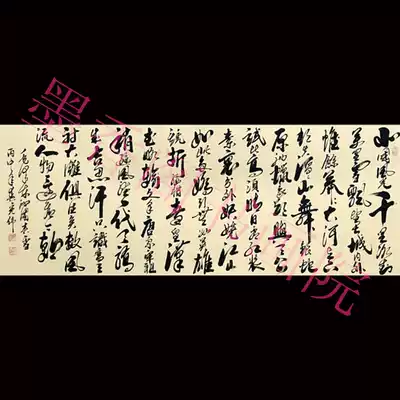 北國風光千里冰封
萬里雪飄望長城內外
惟餘莽莽大河上下
頓失滔滔山舞銀蛇
原馳蠟象欲與天公
試比高須晴日看紅裝
素裹分外妖嬈江山
如此多嬌引無數英雄
競折腰惜秦皇漢
武略輸文采唐宗宋祖
稍遜風騷一代天驕
成吉思汗只識彎弓
射大雕俱往矣數風
流人物還看今朝
毛澤東沁園春雪
丙申年
墨
院